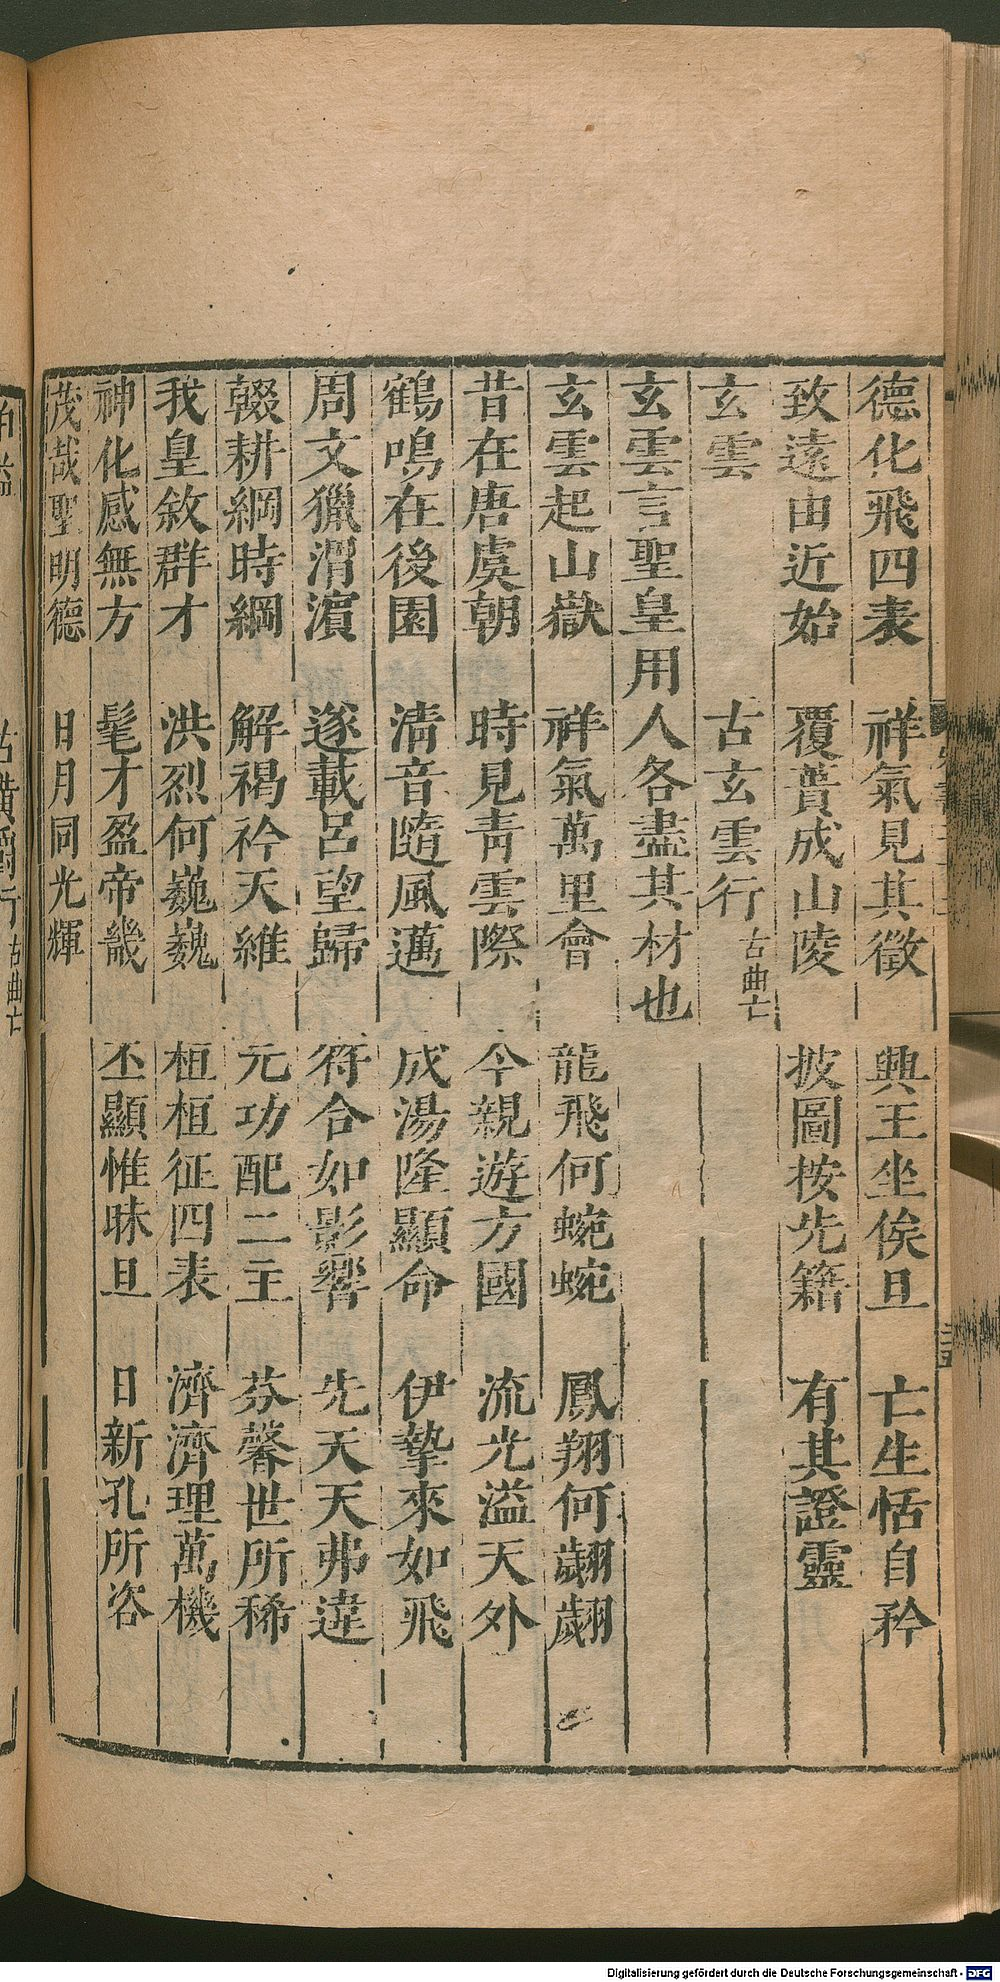 德化飛四表　祥氣見其徵　興王坐俟旦　亡生恬自矜
致遠由近始　覆蕢成山陵　披圖按先籍　有其證靈
玄雲　古玄雲行　古曲亡
玄雲言聖皇用人各盡其材也
玄雲起山嶽　祥氣萬里會　龍飛何蜿蜿　鳳翔何翽翽
昔在唐虞朝　時見青雲際　今親遊方國　流光溢天外
鶴鳴在後園　清音隨風邁　成湯隆顯命　伊摯來如飛
周文獵渭濱　遂載呂望歸　符合如影響　先天天弗違
輟耕綱時綱　解褐衿天維　元功配二主　芬馨世所稀
我皇敘群才　洪烈何巍巍　桓桓征四表　濟濟理萬機
神化感無方　髦才盈帝畿　丕顯惟昧旦　日新孔所咨
茂哉聖明德　日月同光輝
伯益　古黃爵行　古曲亡
Digitalisierung gefördert durch die Deutsche Forschungsgemeinschaft - DFG